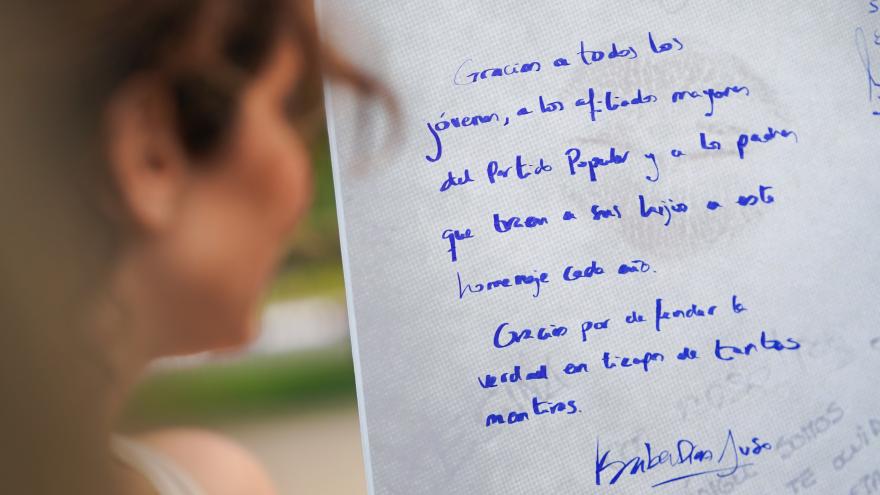 Gracias a todos los
jóvenes, a los afiliados mayores
del Partido Popular y a los padres
que traen a sus hijos a este
homenaje cada año.
Gracias por defender la
verdad en tiempo de tantas
mentiras.
SOMOS
TE